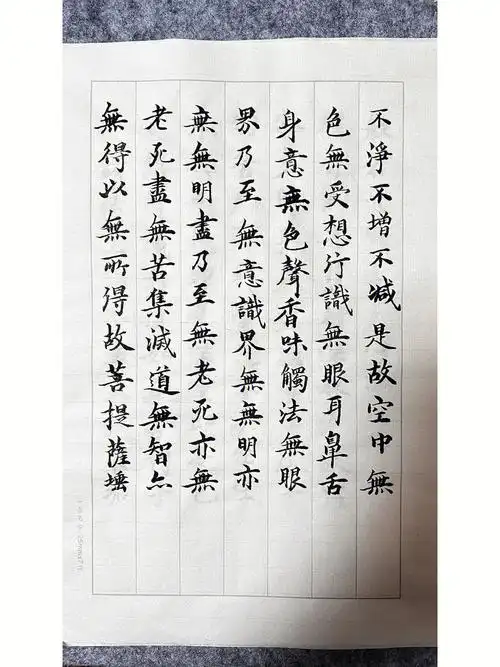 不淨不增不減是故空中無
色無受想行識無眼耳鼻舌
身意無色聲香味觸法無眼
界乃至無意識界無無明亦
無無明盡乃至無老死亦無
老死盡無苦集滅道無智亦
無得以無所得故菩提薩埵